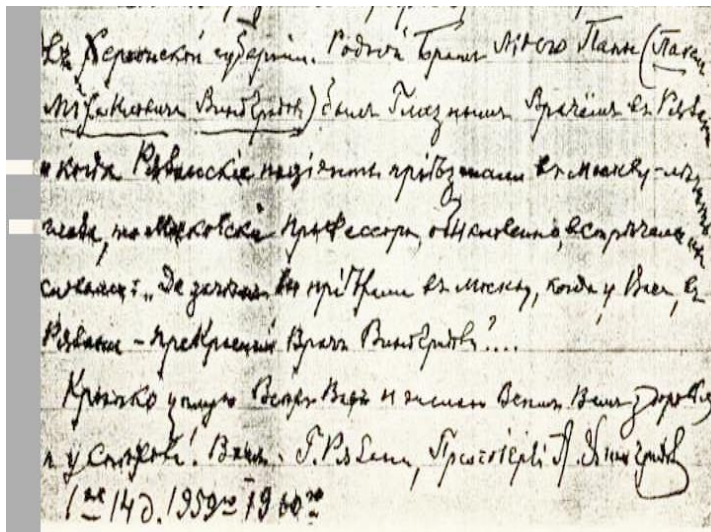 въ Херсонской губерніи. Родной братъ моего Папы (Павла
Виноградовъ) былъ Глазнымъ Врачёмъ въ Рязани
и когда Рязанскіе паціенты пріѣзжали въ Москву
то Московскіе Профессора, обыкновенно, встрѣчали ихъ
словами: „Да зачѣмъ Вы пріѣхали въ Москву, когда у Васъ, въ
Рязани – прекрасный Врачъ Виноградовъ?....
Крѣпко цѣлую Всѣхъ Васъ и желаю Всѣмъ Вамъ здоровья
и успѣховъ! Вашъ. Г. Рязань, Протоіерей Виноградовъ
14 д. 1959го 1960го